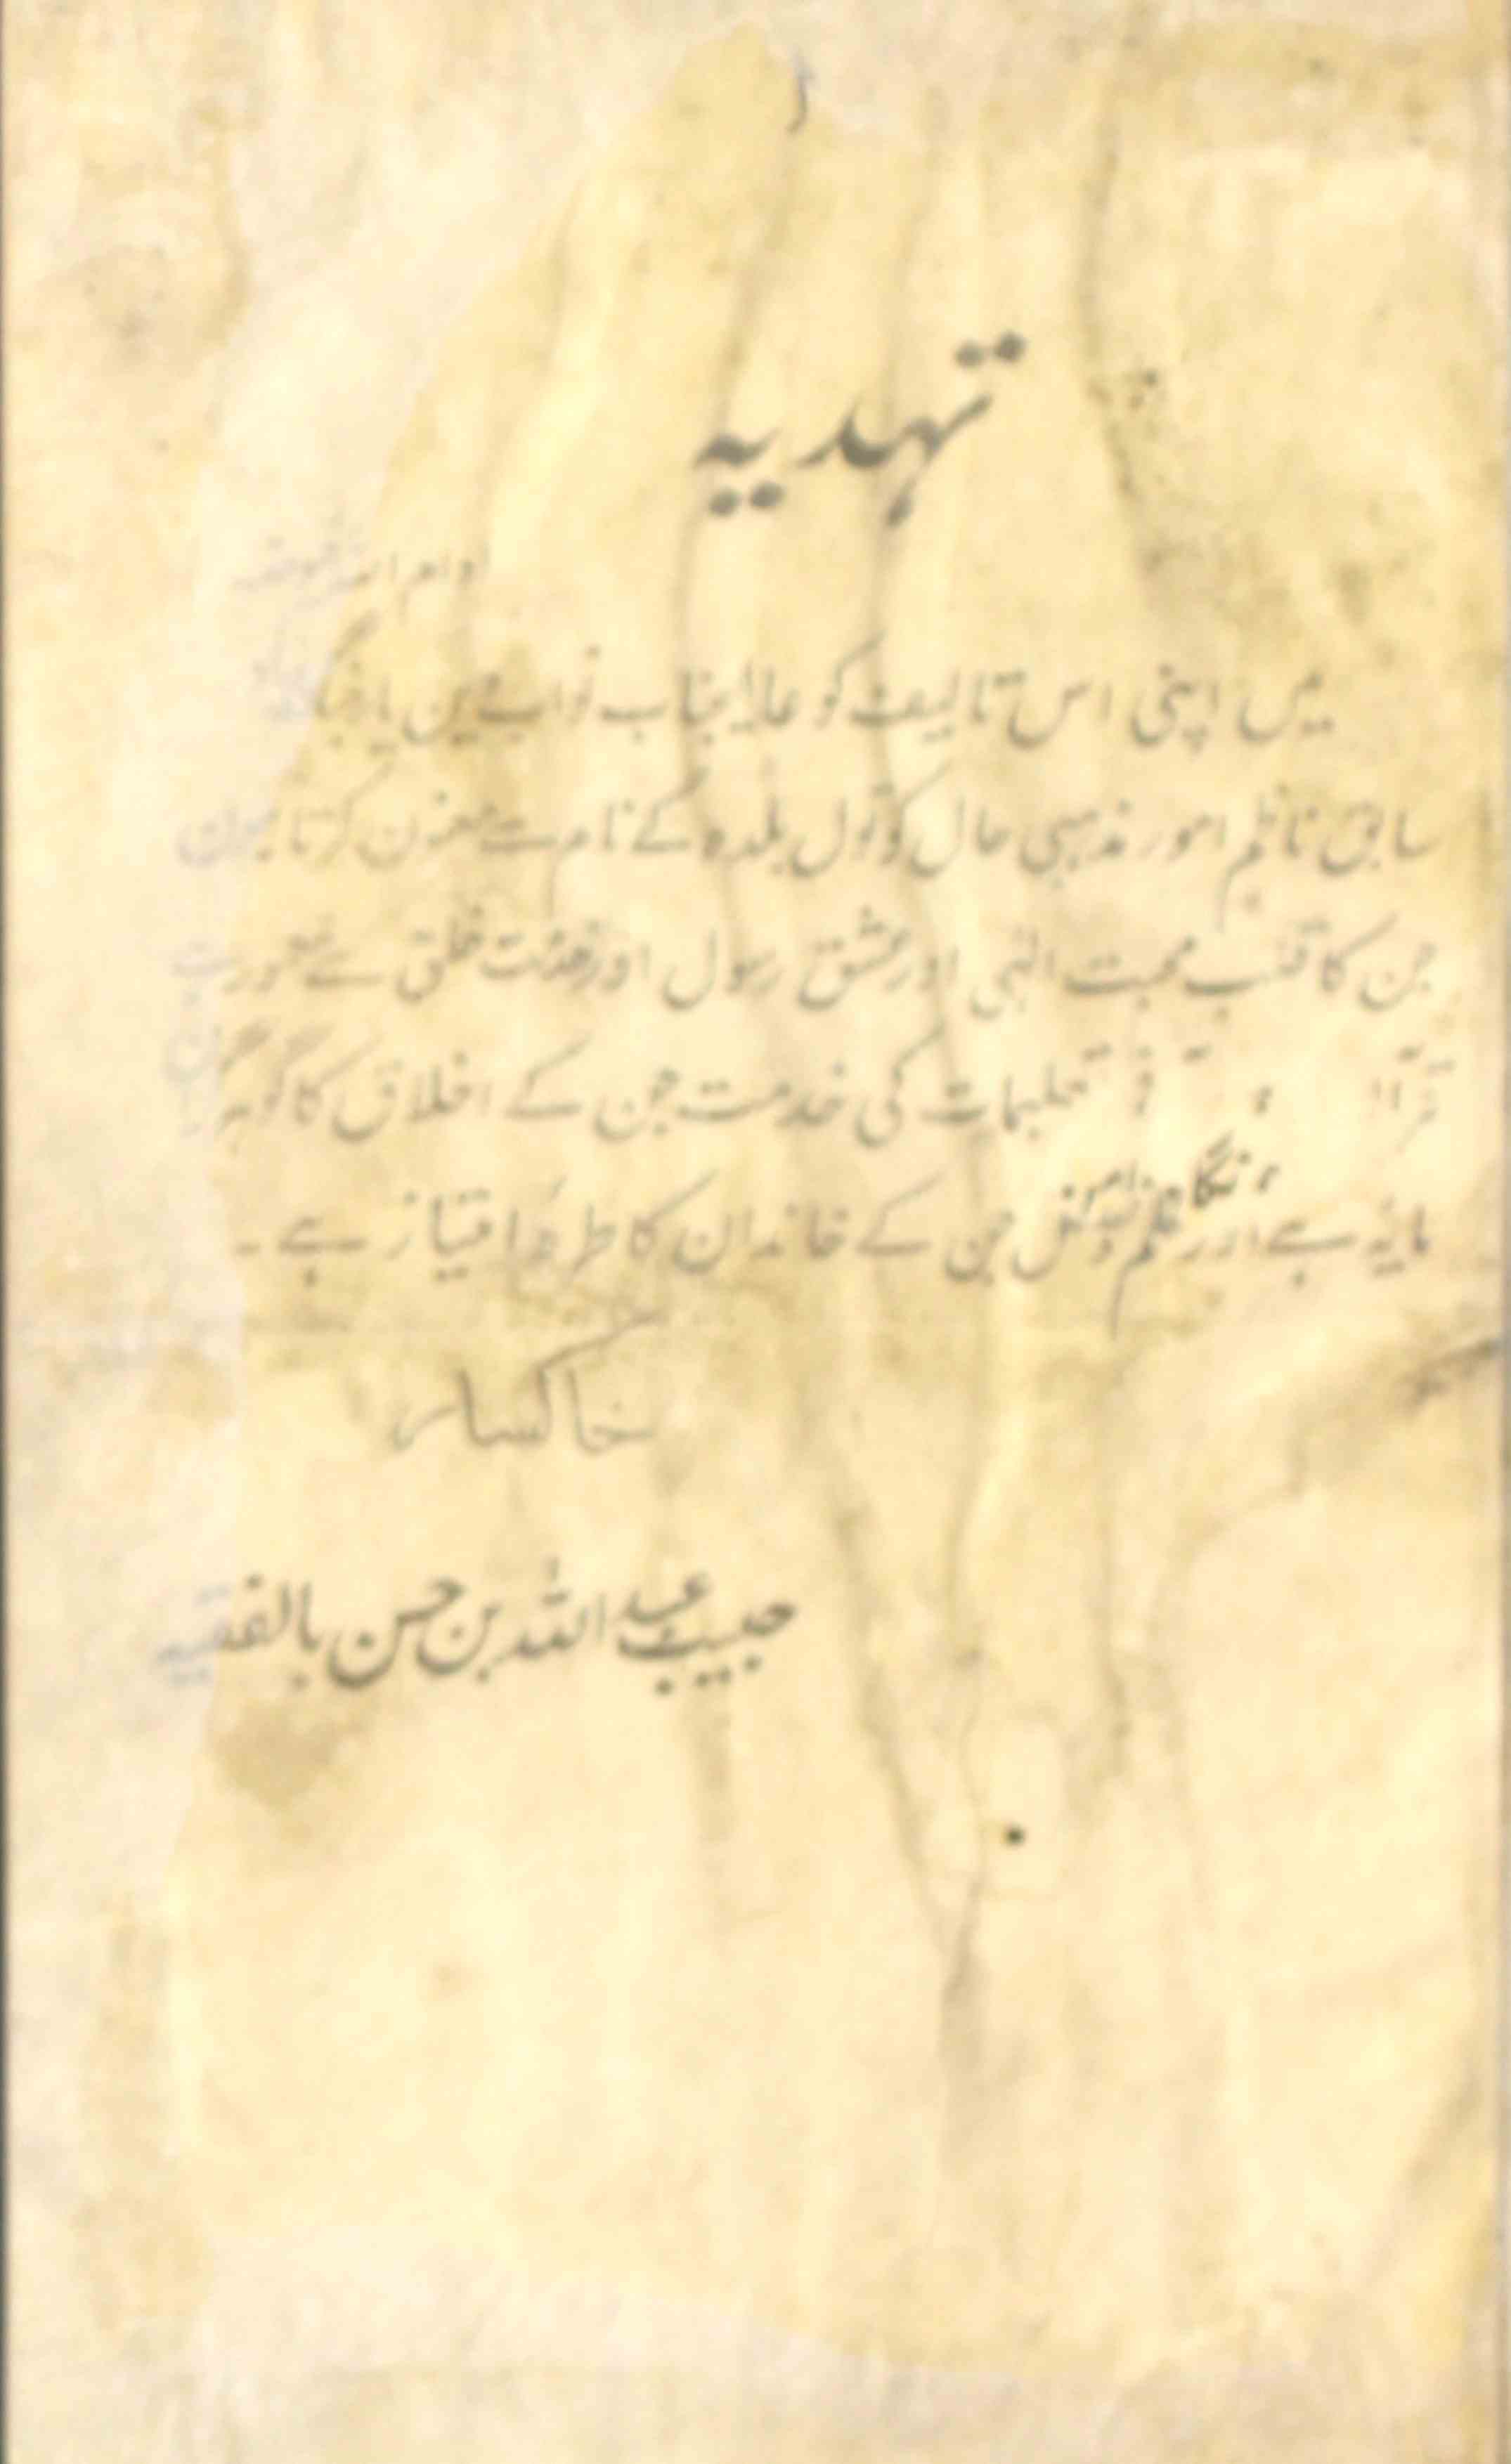 تہدیہ
میں اپنی اس تالیف کو عالیجناب نواب دین یار جنگ
سابق ناظم امور مذہبی حال کوتوال بلدہ کے نام سے معنون کرتا ہوں
جن کا قلب محبت الٰہی اور عشق رسول اور خدمت خلق سے معمور ہے
تعلیمات کی خدمت جن کے اخلاق کا
مایہ ہے اور علم و فضل جن کے خاندان کا طرۂ امتیاز ہے ۔
خاکسار
حبیب عبد اللہ بن حسن بالفقیہ